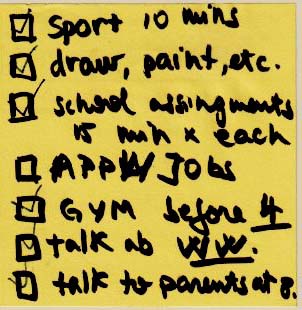 sport 10 mins
draw, paint, etc.
school assingments
15 min x each
APPW Jobs
GYM before 4
talk ab WW.
talk to parents at 8.